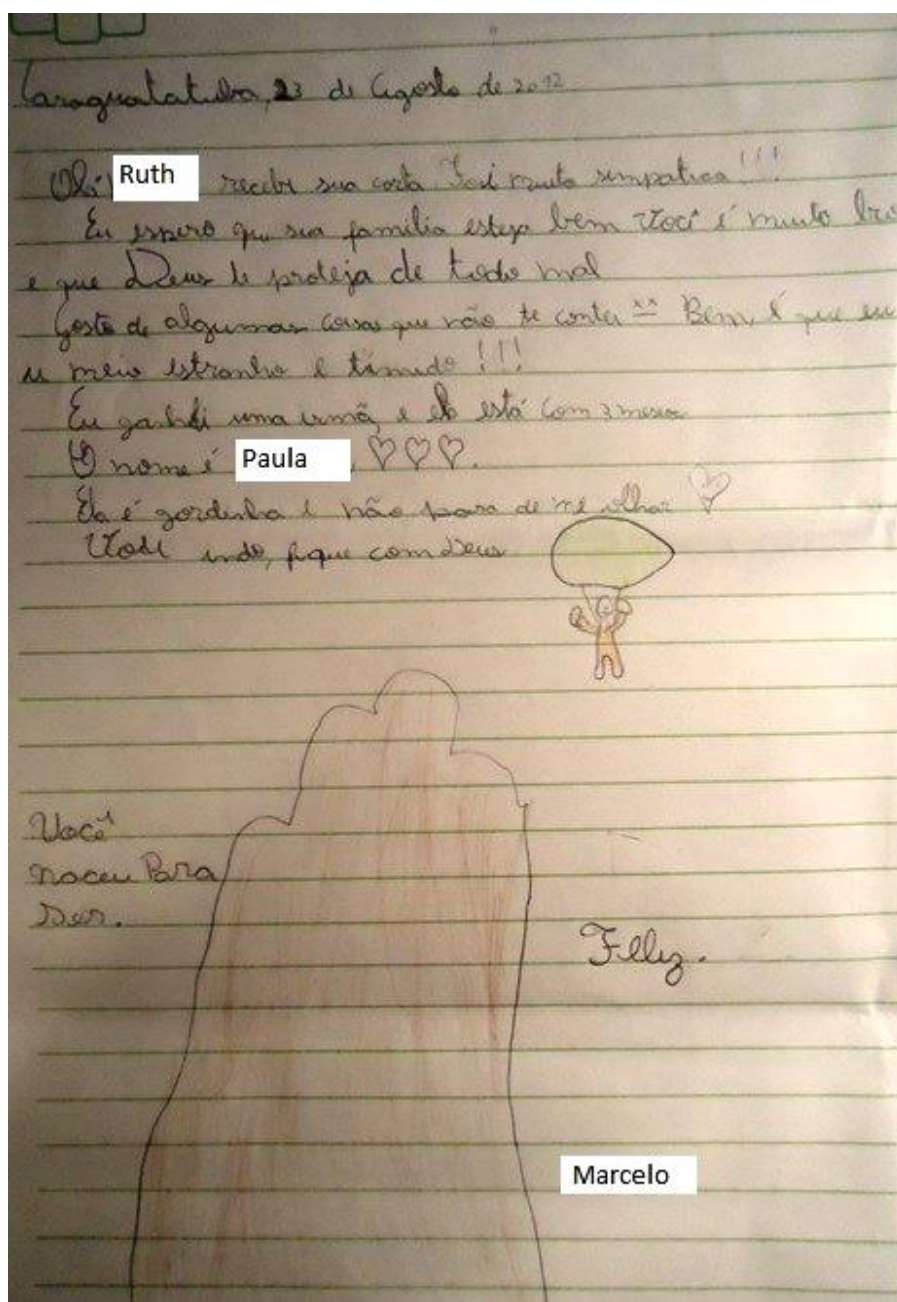 Caraguatatuba, 23 de Agosto de 2012
Olá! Ruth recebi sua carta Foi muito simpatica!!!
Eu espero que sua familia esteja bem Você é muito
e que Deus te proteja de todo mal
Gosto de algumas coisas que não te contei Bem, é que eu
meio estranho e timido!!!
Eu ganhei uma irmã, e ela está com 3 meses
O nome é Paula, ♡♡♡.
Ela é gordinha e não para de me olhar ♡
indo, fique com Deus
Você
naceu Para
Ser.
Feliz.
Marcelo